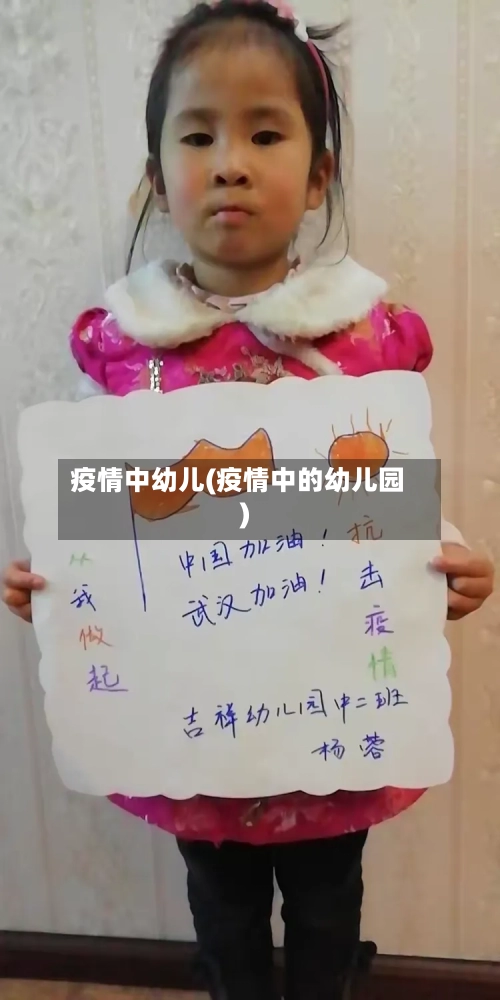 疫情中幼儿(疫情中的幼儿园
)
中国加油！
武汉加油！
抗击疫情
从我做起
吉祥幼儿园中二班
杨蓉